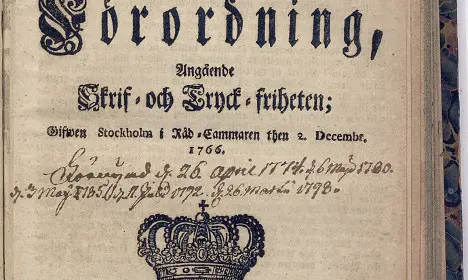 Förordning,
Angående
Skrif- och Tryck-friheten;
Gifwen Stockholm i Råd-Cammaren then 2. Decembr.
1766.
d. 26 april 1774. d. 6 Maji 1780.
d. 3 May 1785. d. 11 Julii 1792. d. 26 Martii 1798.